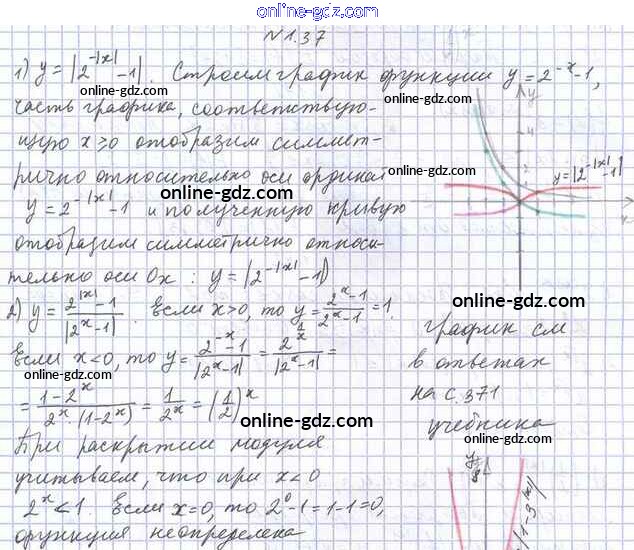 online-gdz.com
N 1.37
1) y = |2^{-|x|} - 1|. Строим график функции y = 2^{-x} - 1,
online-gdz.com online-gdz.com
часть графика, соответствую-
щую x ≥ 0 отобразим симмет-
рично относительно оси ординат
online-gdz.com
y = 2^{-|x|} - 1 и полученную кривую
отобразим симметрично относи-
тельно оси Ox : y = |2^{-|x|} - 1|
y
4
2
x
y = |2^{-|x|} - 1|
online-gdz.com
online-gdz.com
2) y = \frac{2^{|x|} - 1}{|2^x - 1|}. если x > 0, то y = \frac{2^x - 1}{2^x - 1} = 1.
online-gdz.com
если x < 0, то y = \frac{2^{-x} - 1}{|2^x - 1|} = \frac{2^{\frac{1}{x}}}{|2^x - 1|} =
= \frac{1 - 2^x}{2^x · (1 - 2^x)} = \frac{1}{2^x} = (\frac{1}{2})^x
online-gdz.com
график см
online-gdz.com
в ответах
на с. 371
online-gdz.com
учебника
При раскрытии модуля
учитываем, что при x < 0
2^x < 1. если x = 0, то 2^0 - 1 = 1 - 1 = 0,
online-gdz.com
функция неопределена
y
8
online-gdz.com